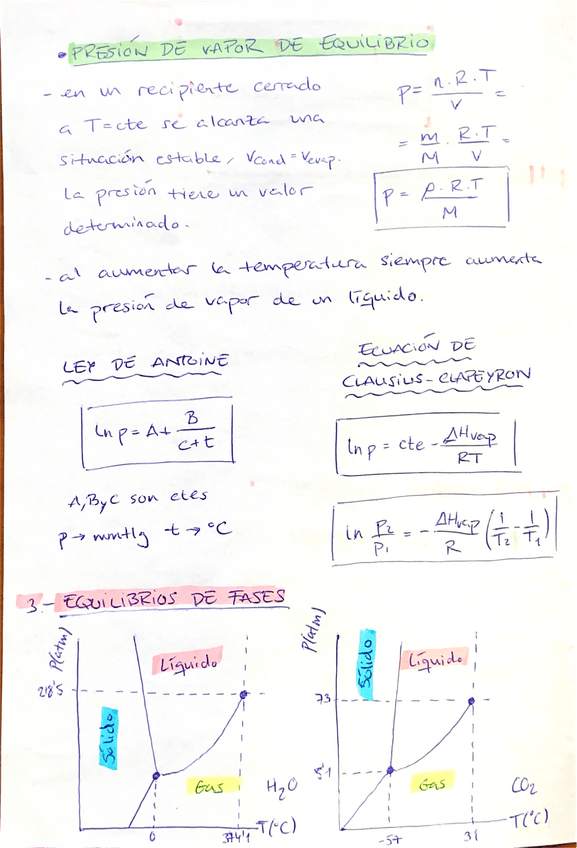 • PRESIÓN DE VAPOR DE EQUILIBRIO
- en un recipiente cerrado
a T=cte se alcanza una
situación estable, Vcond = Vevap.
la presión tiene un valor
determinado.
P = n.R.T / V =
= m/M . R.T/V =
P = ρ.R.T / M
- al aumentar la temperatura siempre aumenta
la presión de vapor de un líquido.
LEY DE ANTOINE
ln p = A + B / c+t
A, B y C son ctes
p → mmHg t → °C
ECUACIÓN DE
CLAUSIUS-CLAPEYRON
ln p = cte - ΔHvap / RT
ln P2/P1 = - ΔHvap/R (1/T2 - 1/T1)
3.- EQUILIBRIOS DE FASES
P(atm)
218'5
Sólido
Líquido
Gas
H2O
0
374'1
T(°C)
P(atm)
73
5'1
Sólido
Líquido
Gas
CO2
-57
31
T(°C)